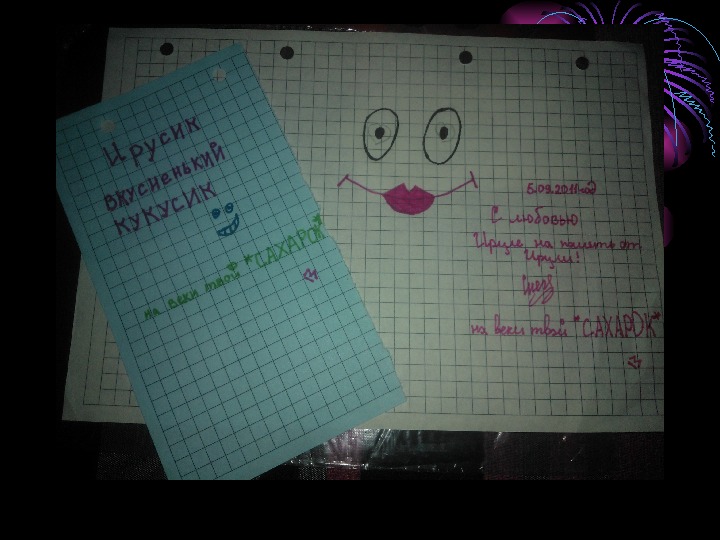 Ирусик
вкусненький
кукусик
на веки твой "САХАРОК"
5.09.2011 год
С любовью
Ирусе на память от
Ируси!
на веки твой "САХАРОК"